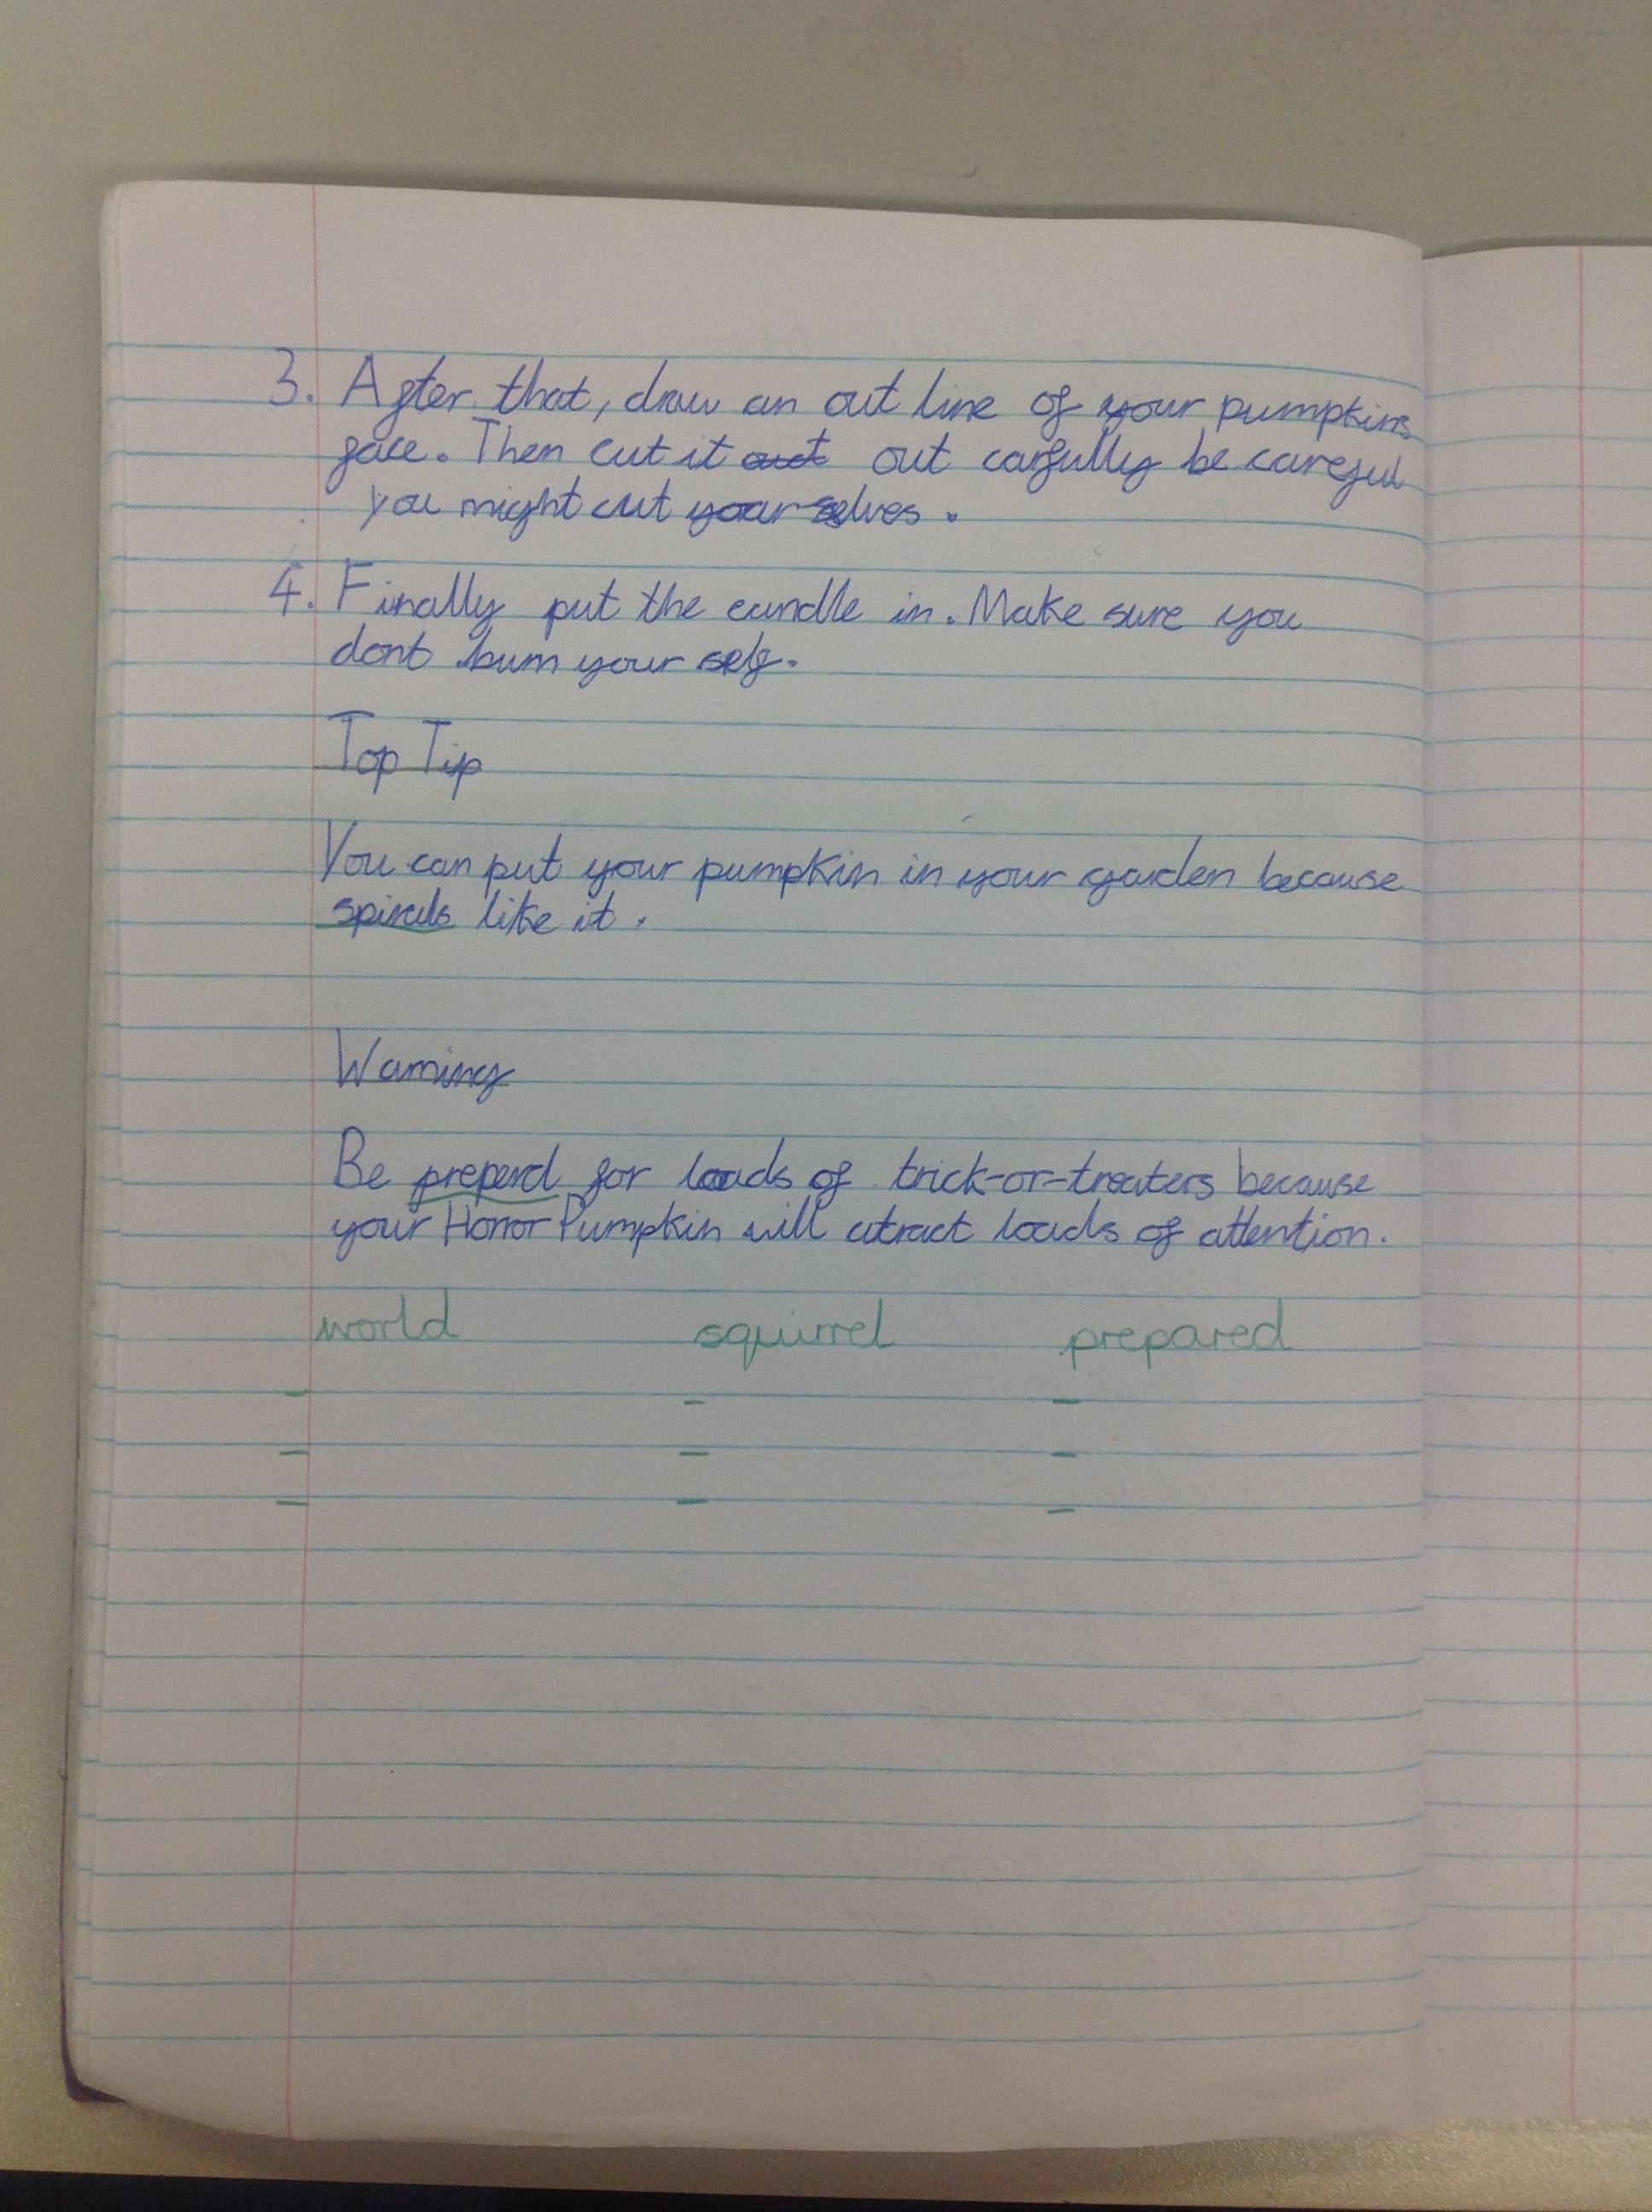 3. After that, draw an out line of your pumpkins
face. Then cut it out out carfully be careful
you might cut yourselves.
4. Finally put the candle in. Make sure you
dont burn your self.
Top Tip
You can put your pumpkin in your garden because
spirals like it.
Warning
Be preperd for loads of trick-or-treaters because
your Horror Pumpkin will atract loads of attention.
world squirrel prepared
- - -
- - -
- - -